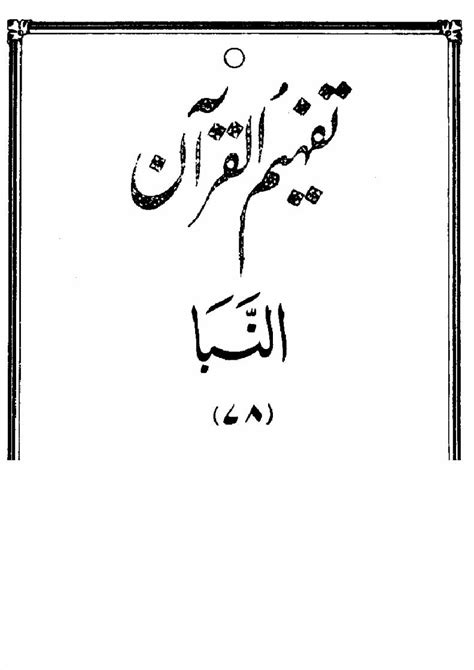 تفہیم القرآن
النَّبَا
(۷۸)